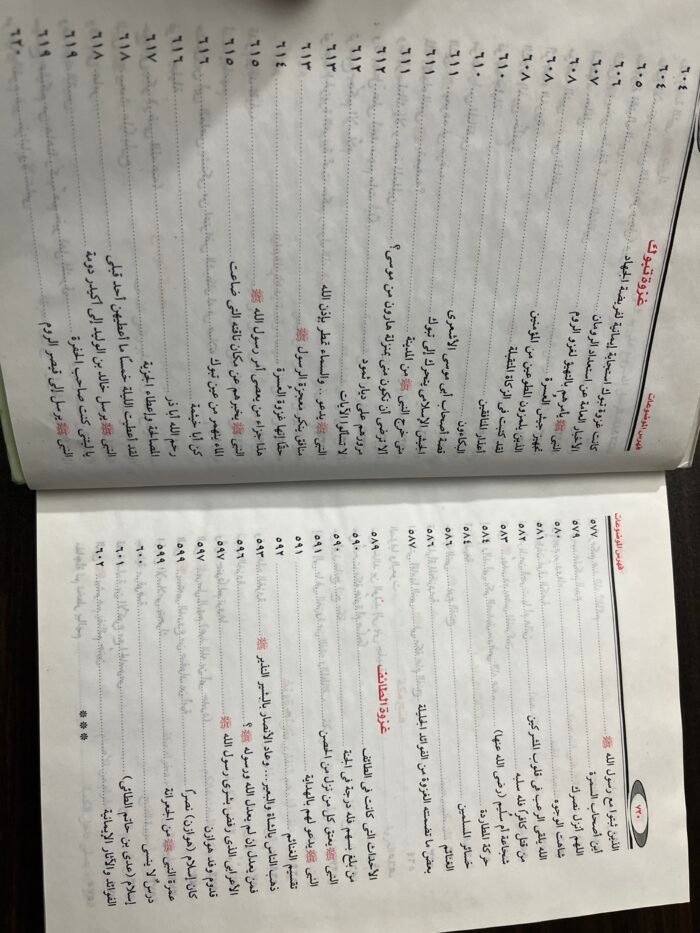 ٧٣٠
فهرس الموضوعات
الذين ثبتوا مع رسول الله ﷺ ٥٧٧
أين أصحاب السمرة ٥٧٩
اللهم أنزل نصرك ٥٨٠
شاهت الوجوه ٥٨١
الله يلقى الرعب فى قلوب المشركين ٥٨٢
من قتل كافرًا فله سلبه ٥٨٣
شجاعة أم سُليم (رضى الله عنها) ٥٨٤
حركة المطاردة ٥٨٤
خسائر المسلمين ٥٨٦
الغنائم ٥٨٦
بعض ما تضمنته الغزوة من الفوائد الجليلة ٥٨٧
غزوة الطائف
الأحداث التى كانت فى الطائف ٥٨٩
من بلغ بسهم فله درجة فى الجنة ٥٩٠
النبى ﷺ يعتق كل من نزل من الحصن ٥٩٠
النبى ﷺ يدعو لهم بالهداية ٥٩١
تقسيم الغنائم ٥٩١
ذهب الناس بالشاة والبعير... وعاد الأنصار بالبشير النذير ﷺ ٥٩٢
فمن يعدل إن لم يعدل الله ورسوله ﷺ ؟ ٥٩٣
الأعرابى الذى رفض بشرى رسول الله ﷺ ٥٩٦
قدوم وفد هوازن ٥٩٧
كان إسلام (هوازن) نصرًا ٥٩٩
عمرة النبى ﷺ من الجعرانة ٥٩٩
درسٌ لا يُنسى ٦٠٠
إسلام (عدى بن حاتم الطائى) ٦٠١
الفوائد والآثار الإيمانية ٦٠٢
* * *
فهرس الموضوعات
غزوة تبوك
كانت غزوة تبوك استجابة إيمانية لفريضة الجهاد ٦٠٤
الأخبار العامة عن استعداد الرومان ٦٠٤
النبى ﷺ يأمرهم بالتهيؤ لغزو الروم ٦٠٥
تجهيز جيش العسرة ٦٠٦
الذين يلمزون المطوعين من المؤمنين ٦٠٧
لقد كتبت فى الزكاة المتقبلة ٦٠٨
أعذار المنافقين ٦٠٨
البكاءون ٦١٠
قصة أصحاب أبى موسى الأشعرى ٦١٠
الجيش الإسلامى يتحرك إلى تبوك ٦١١
متى خرج النبى ﷺ من المدينة ٦١١
ألا ترضى أن تكون منى بمنزلة هارون من موسى؟ ٦١١
مرورهم على ديار ثمود ٦١٢
لا تسألوا الآيات ٦١٢
النبى ﷺ يدعو.. والسماء تمطر بإذن الله ٦١٣
منافق ينكر معجزة الرسول ﷺ ٦١٣
حقًا إنها غزوة العسرة ٦١٤
هذا جزاء من يعصى أمر رسول الله ﷺ ٦١٥
النبى ﷺ يخبرهم عن مكان ناقته التى ضاعت ٦١٥
الماء ينهمر من عين تبوك ٦١٦
كن أبا خيثمة ٦١٦
رحم الله أبا ذر ٦١٧
المصالحة وإعطاء الجزية ٦١٨
لقد أعطيت الليلة خمسًا ما أعطيهن أحد قبلى ٦١٨
النبى ﷺ يرسل خالد بن الوليد إلى أكيدر دومة ٦١٩
يا ليتنى كنت صاحب الحفرة ٦١٩
النبى ﷺ يرسل إلى قيصر الروم ٦٢٠